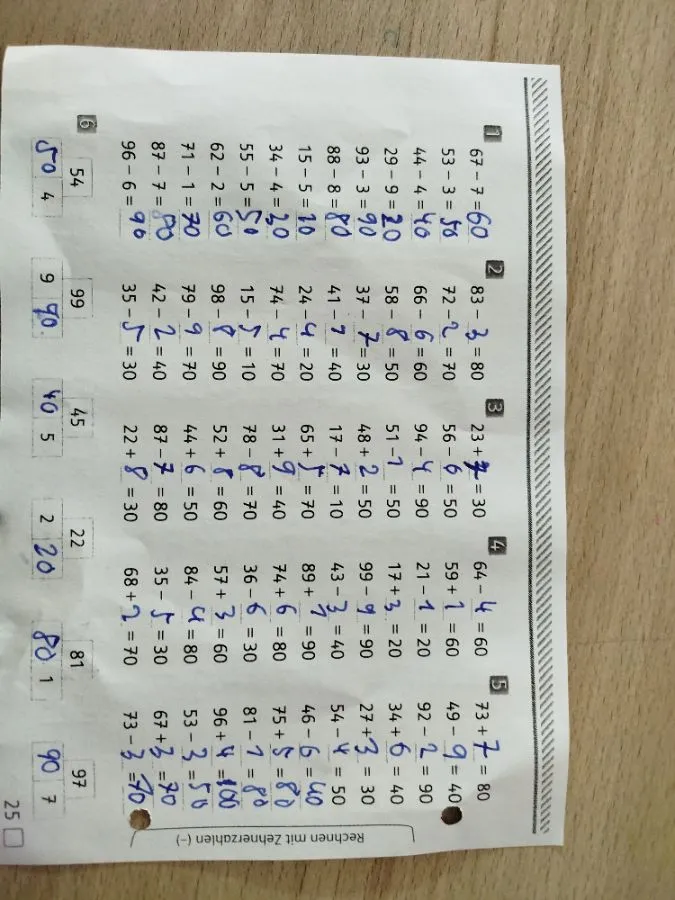 Rechnen mit Zehnerzahlen (−)
1 2 3 4 5
67 − 7 = 60 83 − 3 = 80 23 + 7 = 30 64 − 4 = 60 73 + 7 = 80
53 − 3 = 50 72 − 2 = 70 56 − 6 = 50 59 + 1 = 60 49 − 9 = 40
44 − 4 = 40 66 − 6 = 60 94 − 4 = 90 21 − 1 = 20 92 − 2 = 90
29 − 9 = 20 58 − 8 = 50 51 − 1 = 50 17 + 3 = 20 34 + 6 = 40
93 − 3 = 90 37 − 7 = 30 48 + 2 = 50 99 − 9 = 90 27 + 3 = 30
88 − 8 = 80 41 − 1 = 40 17 − 7 = 10 43 − 3 = 40 54 − 4 = 50
15 − 5 = 10 24 − 4 = 20 65 + 5 = 70 89 + 1 = 90 46 − 6 = 40
34 − 4 = 30 74 − 4 = 70 31 + 9 = 40 74 + 6 = 80 75 + 5 = 80
55 − 5 = 50 15 − 5 = 10 78 − 8 = 70 36 − 6 = 30 81 − 1 = 80
62 − 2 = 60 98 − 8 = 90 52 + 8 = 60 57 + 3 = 60 96 + 4 = 100
71 − 1 = 70 79 − 9 = 70 44 + 6 = 50 84 − 4 = 80 53 − 3 = 50
87 − 7 = 80 42 − 2 = 40 87 − 7 = 80 35 − 5 = 30 67 + 3 = 70
96 − 6 = 90 35 − 5 = 30 22 + 8 = 30 68 + 2 = 70 73 − 3 = 70
6 54 99 45 22 81 97
50 4 9 90 40 5 2 20 80 1 90 7
25